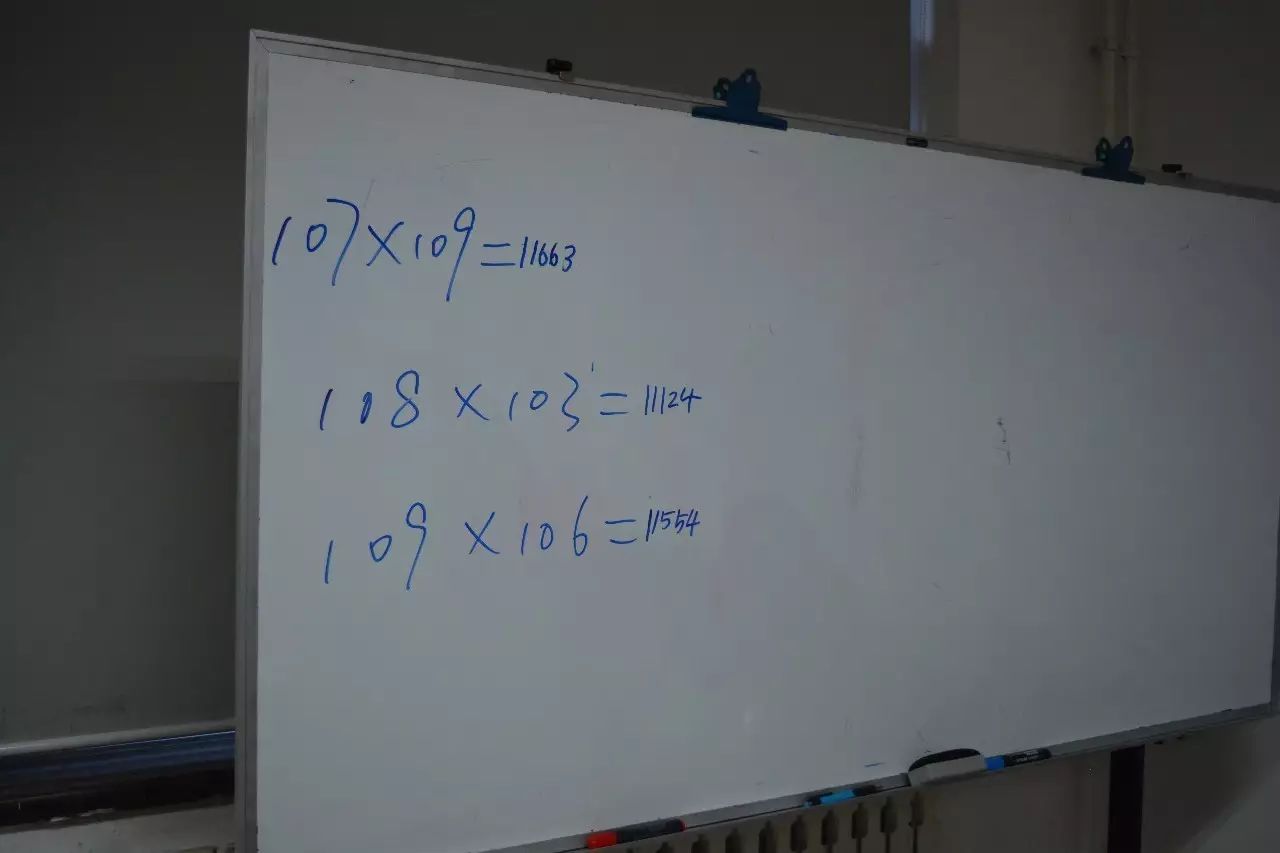 107×109=11663
108×103=11124
109×106=11554